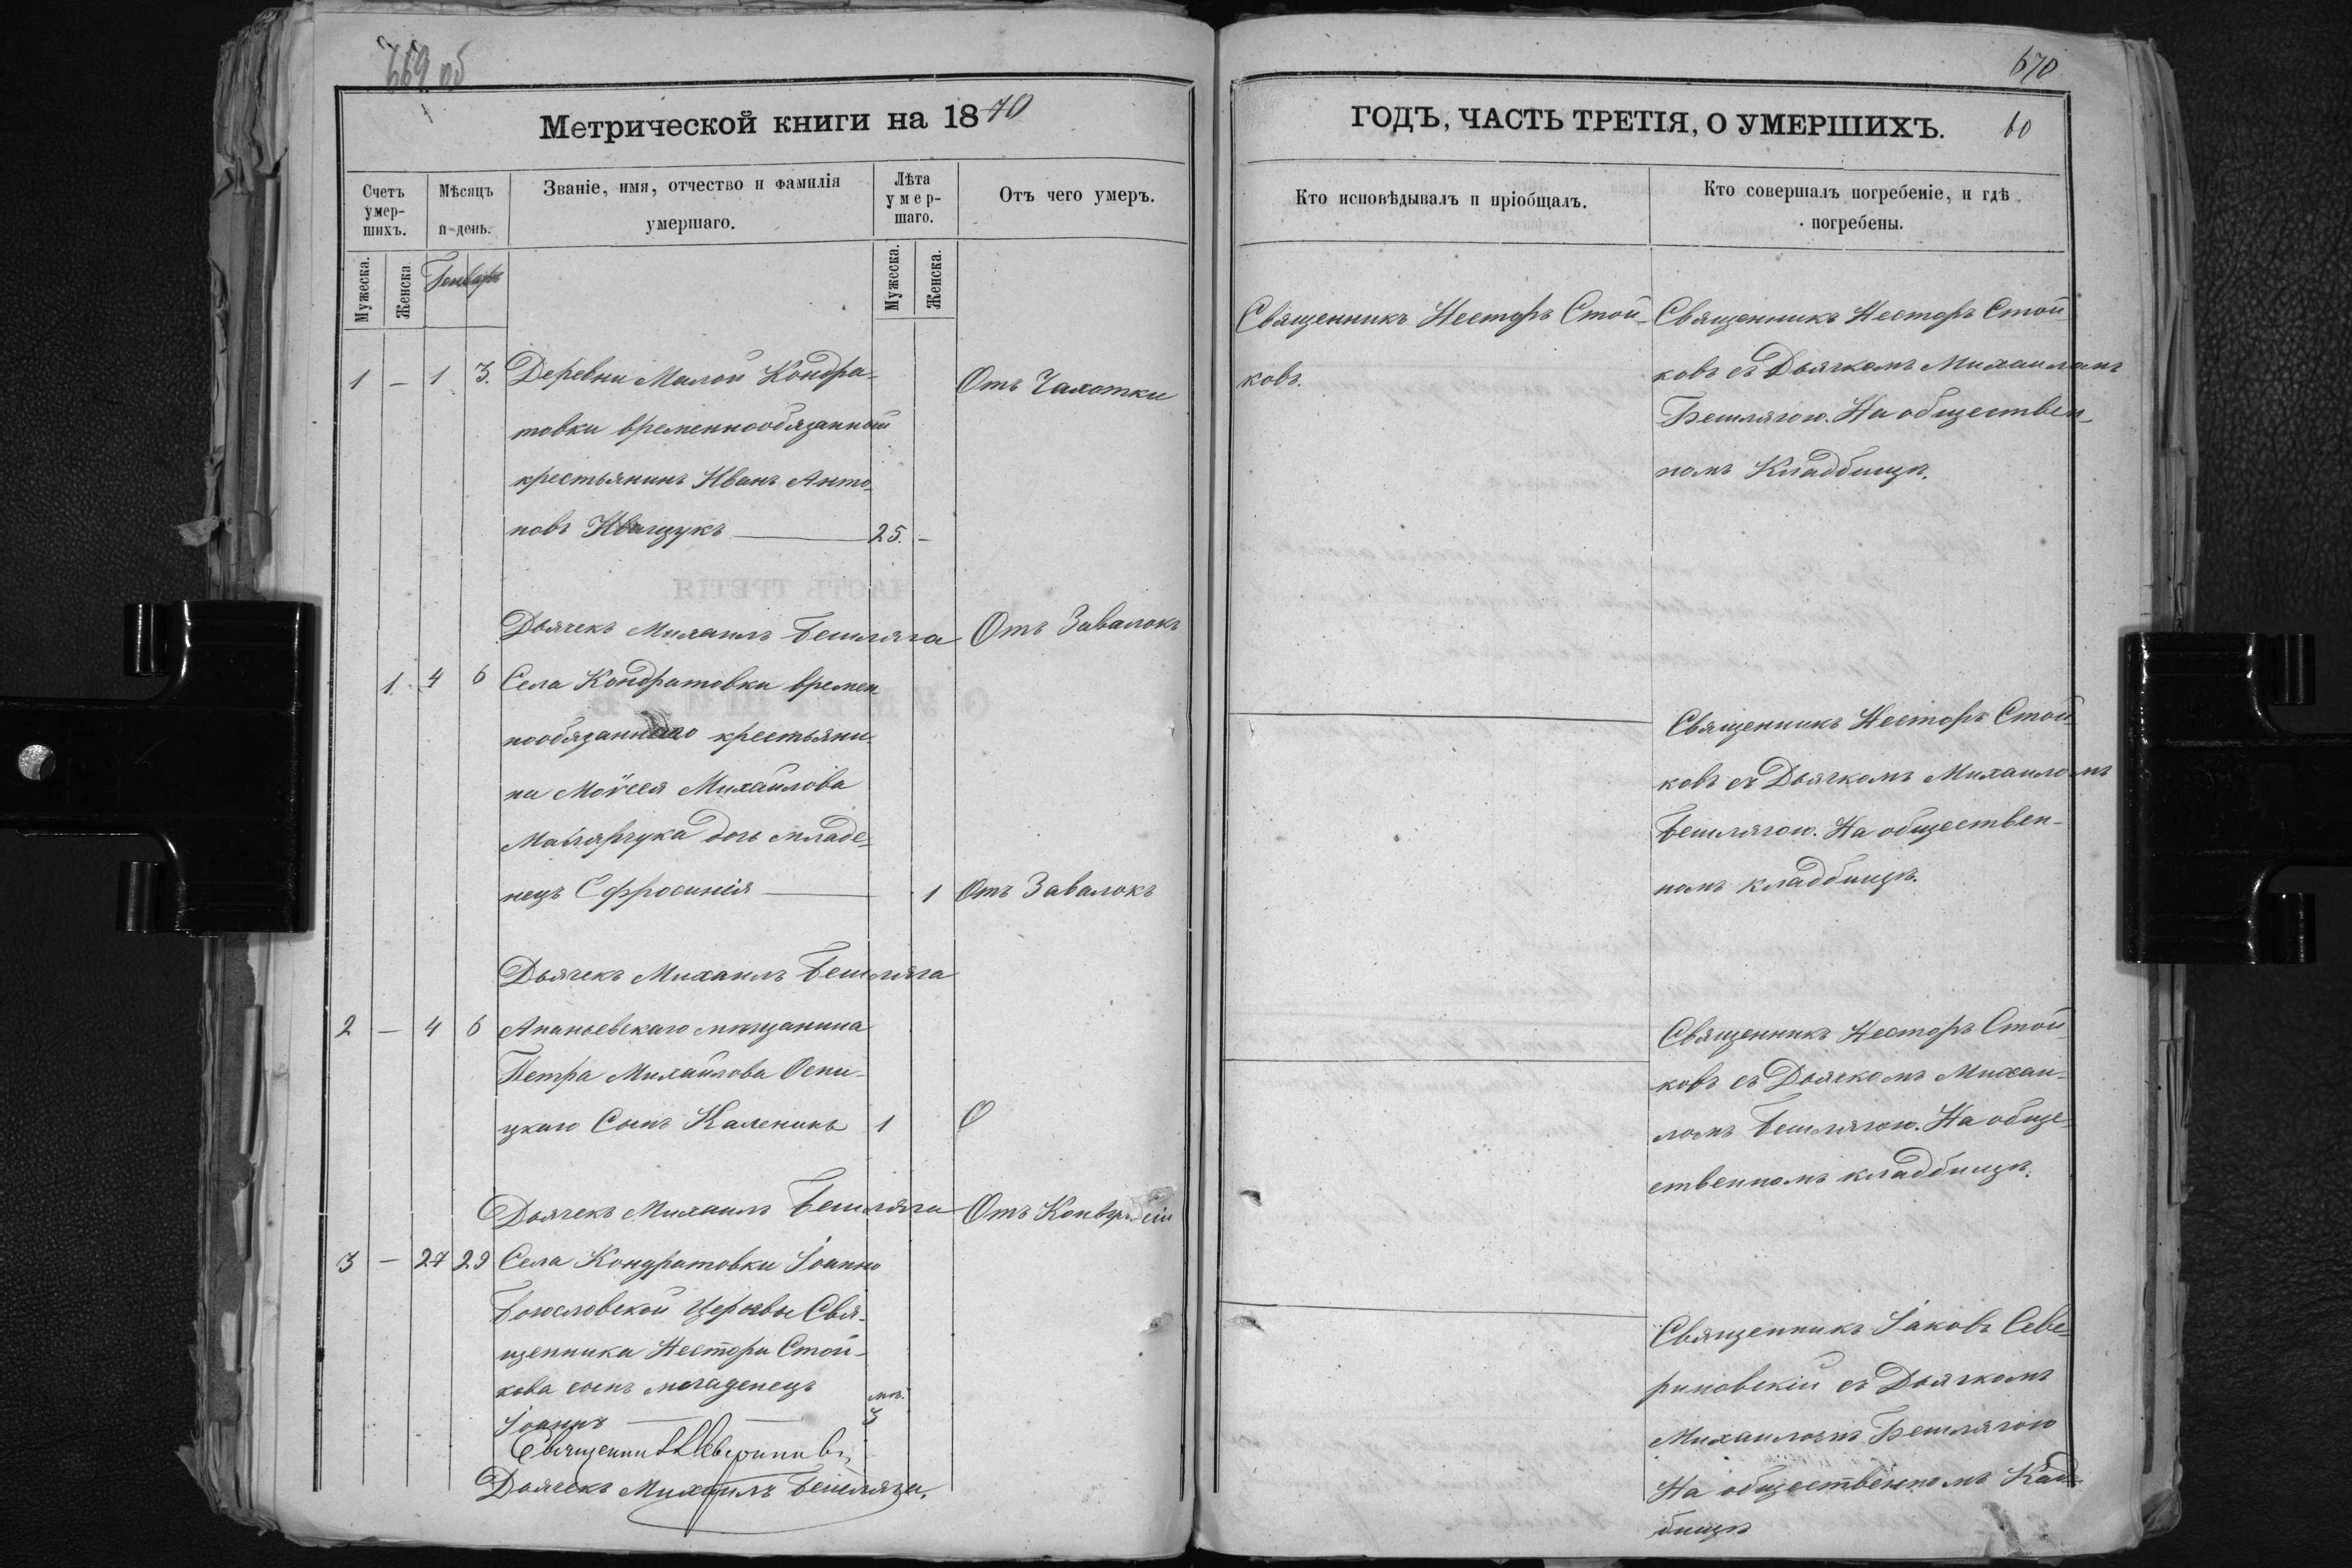 669 об
Метрической книги на 1870
Счетъ умер-шихъ.
Мѣсяцъ и день.
Званіе, имя, отчество и фамилія умершаго.
Лѣта умер-шаго.
Отъ чего умеръ.
Мужеска.
Женска.
Генварь
Мужеска.
Женска.
1 — 1 3. Деревни Малой Кондра- Отъ Чахотки
товки временнообязанный
крестьянинъ Иванъ Анто-
новъ Иващукъ 25. —
Дьячекъ Михаилъ Бешляга Отъ Завалокъ
1. 4 6 Села Кондратовки времен-
нообязаннаго крестьяни-
на Моѵсея Михайлова
дочь младе-
нецъ Ефросинія 1 Отъ Завалокъ
Дьячекъ Михаилъ Бешляга
2 — 4 6 Ананьевскаго мѣщанина
Петра Михайлова Оспи-
цкаго Сынъ Каленикъ 1 О
Дьячекъ Михаилъ Бешляга Отъ
3 — 27 29 Села Кондратовки Іоанно
Богословской Церквы Свя-
щенника Нестора Стой-
кова сынъ младенецъ мѣ.
Іоаннъ 3
Дьячекъ Михаилъ Бешляга.
670
ГОДЪ, ЧАСТЬ ТРЕТІЯ, О УМЕРШИХЪ. 60
Кто исповѣдывалъ и пріобщалъ.
Кто совершалъ погребеніе, и гдѣ погребены.
Священникъ Несторъ Стой-
ковъ.
Священникъ Несторъ Стой-
ковъ съ Дьячкомъ Михаиломъ
Бешлягою. На обществен-
номъ Кладбищѣ.
Священникъ Несторъ Стой
ковъ съ Дьячкомъ Михаиломъ
Бешлягою. На обществен-
номъ кладбищѣ.
Священникъ Несторъ Стой
ковъ съ Дьячкомъ Михаи-
ломъ Бешлягою. На обще-
ственномъ кладбищѣ.
Священникъ Іаковъ Севе-
риновскій съ Дьячкомъ
Михаиломъ Бешлягою
На общественномъ Клад-
бищѣ